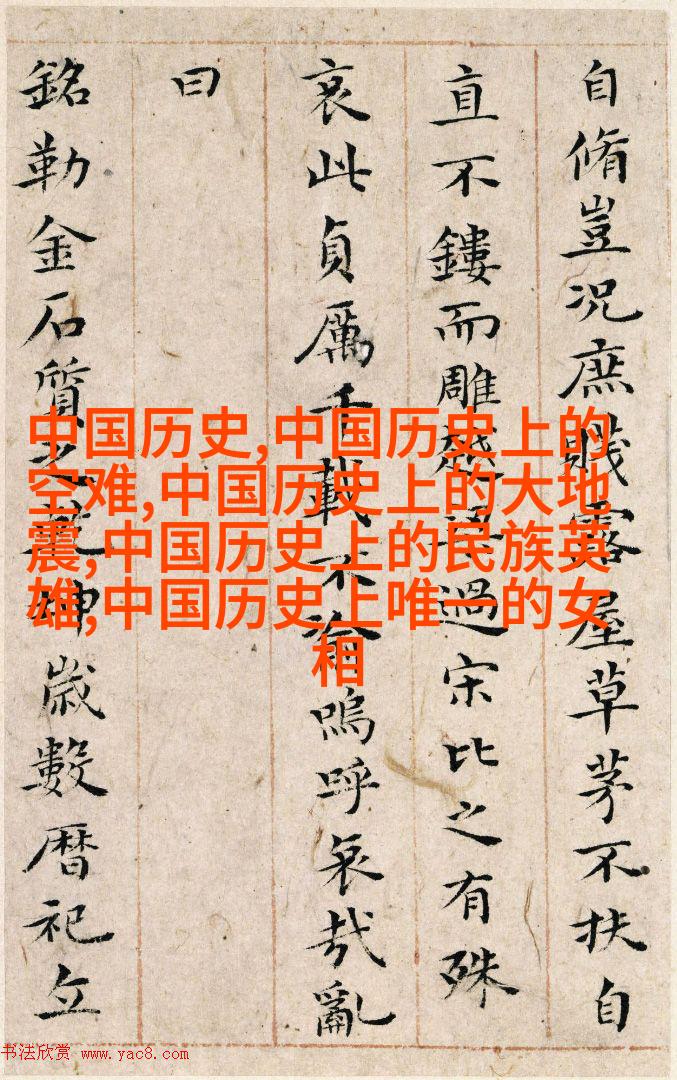 自脩豈況庶賤露屋草茅不扶自
直不鏤而雕越過宋比之有殊
哀此貞厲千載不渝嗚呼哀哉亂
曰
銘勒金石質之坤歲數曆祀立
中国历史,中国历史上的
空难,中国历史上的大地
震,中国历史上的民族英
雄,中国历史上唯一的女
相
书法欣赏 www.yac8.com